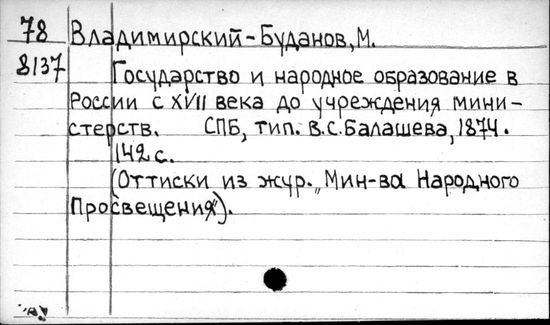 78 Владимирский-Буданов, М.
8137 Государство и народное образование в
России с XVII века до учреждения мини-
стерств. СПБ, тип. В.С. Балашева, 1874.
142 с.
(Оттиски из жур. „Мин-ва Народного
Просвещения").